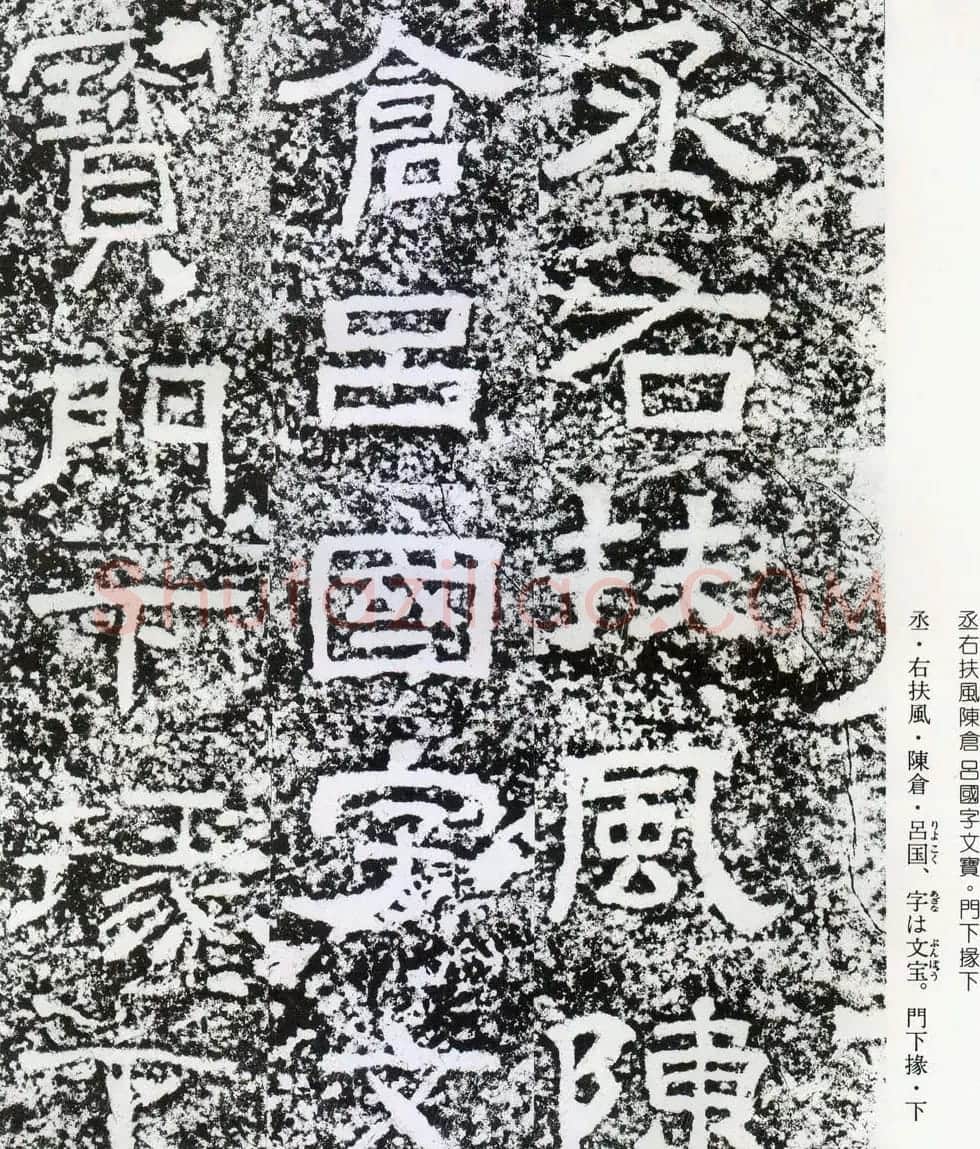 丞右扶風陳
倉呂國字文
寶門下掾下
丞右扶風陳倉呂國字文寶。門下掾下
丞・右扶風・陳倉・呂国、字は文宝。門下掾・下
りょこく
あざな
ぶんぽう
Shufaziliao.COM